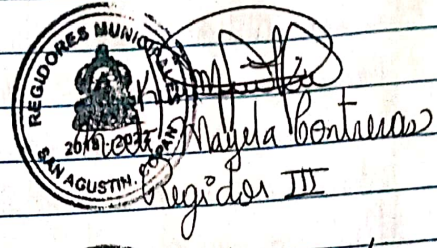 REGIDORES MUNICIPALES
SAN AGUSTIN, COPAN
Mayela Contreras
Regidor III